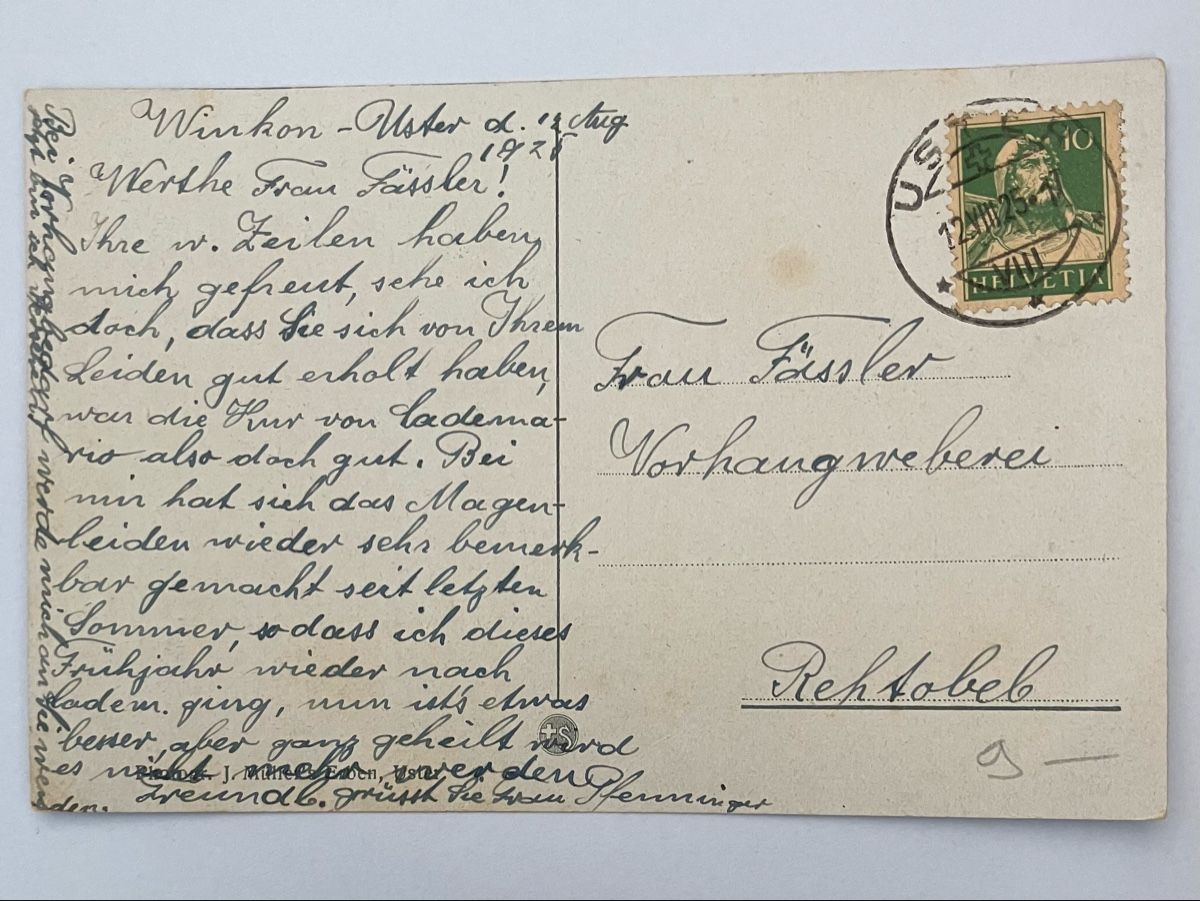 Winkon - Uster d. 12 Aug
1925
Werthe Frau Fässler!
Ihre w. Zeilen haben
mich gefreut, sehe ich
doch, dass Sie sich von Ihrem
Leiden gut erholt haben,
war die Kur von Cadema-
rio also doch gut. Bei
mir hat sich das Magen-
leiden wieder sehr bemerk-
bar gemacht seit letzten
Sommer, sodass ich dieses
Frühjahr wieder nach
Cadem. ging, nun ist's etwas
besser, aber ganz geheilt wird
es nicht mehr werden
Freundl. grüsst Sie Frau Pfenninger
Bei Vorhangbedarf werde mich an Sie wen
den.
jetzt bin ich
J. Müller's Erben, Uster
+S
USTER
12.VIII.25
VIII
10
HELVETIA
Frau Fässler
Vorhangweberei
Rehtobel
9 —